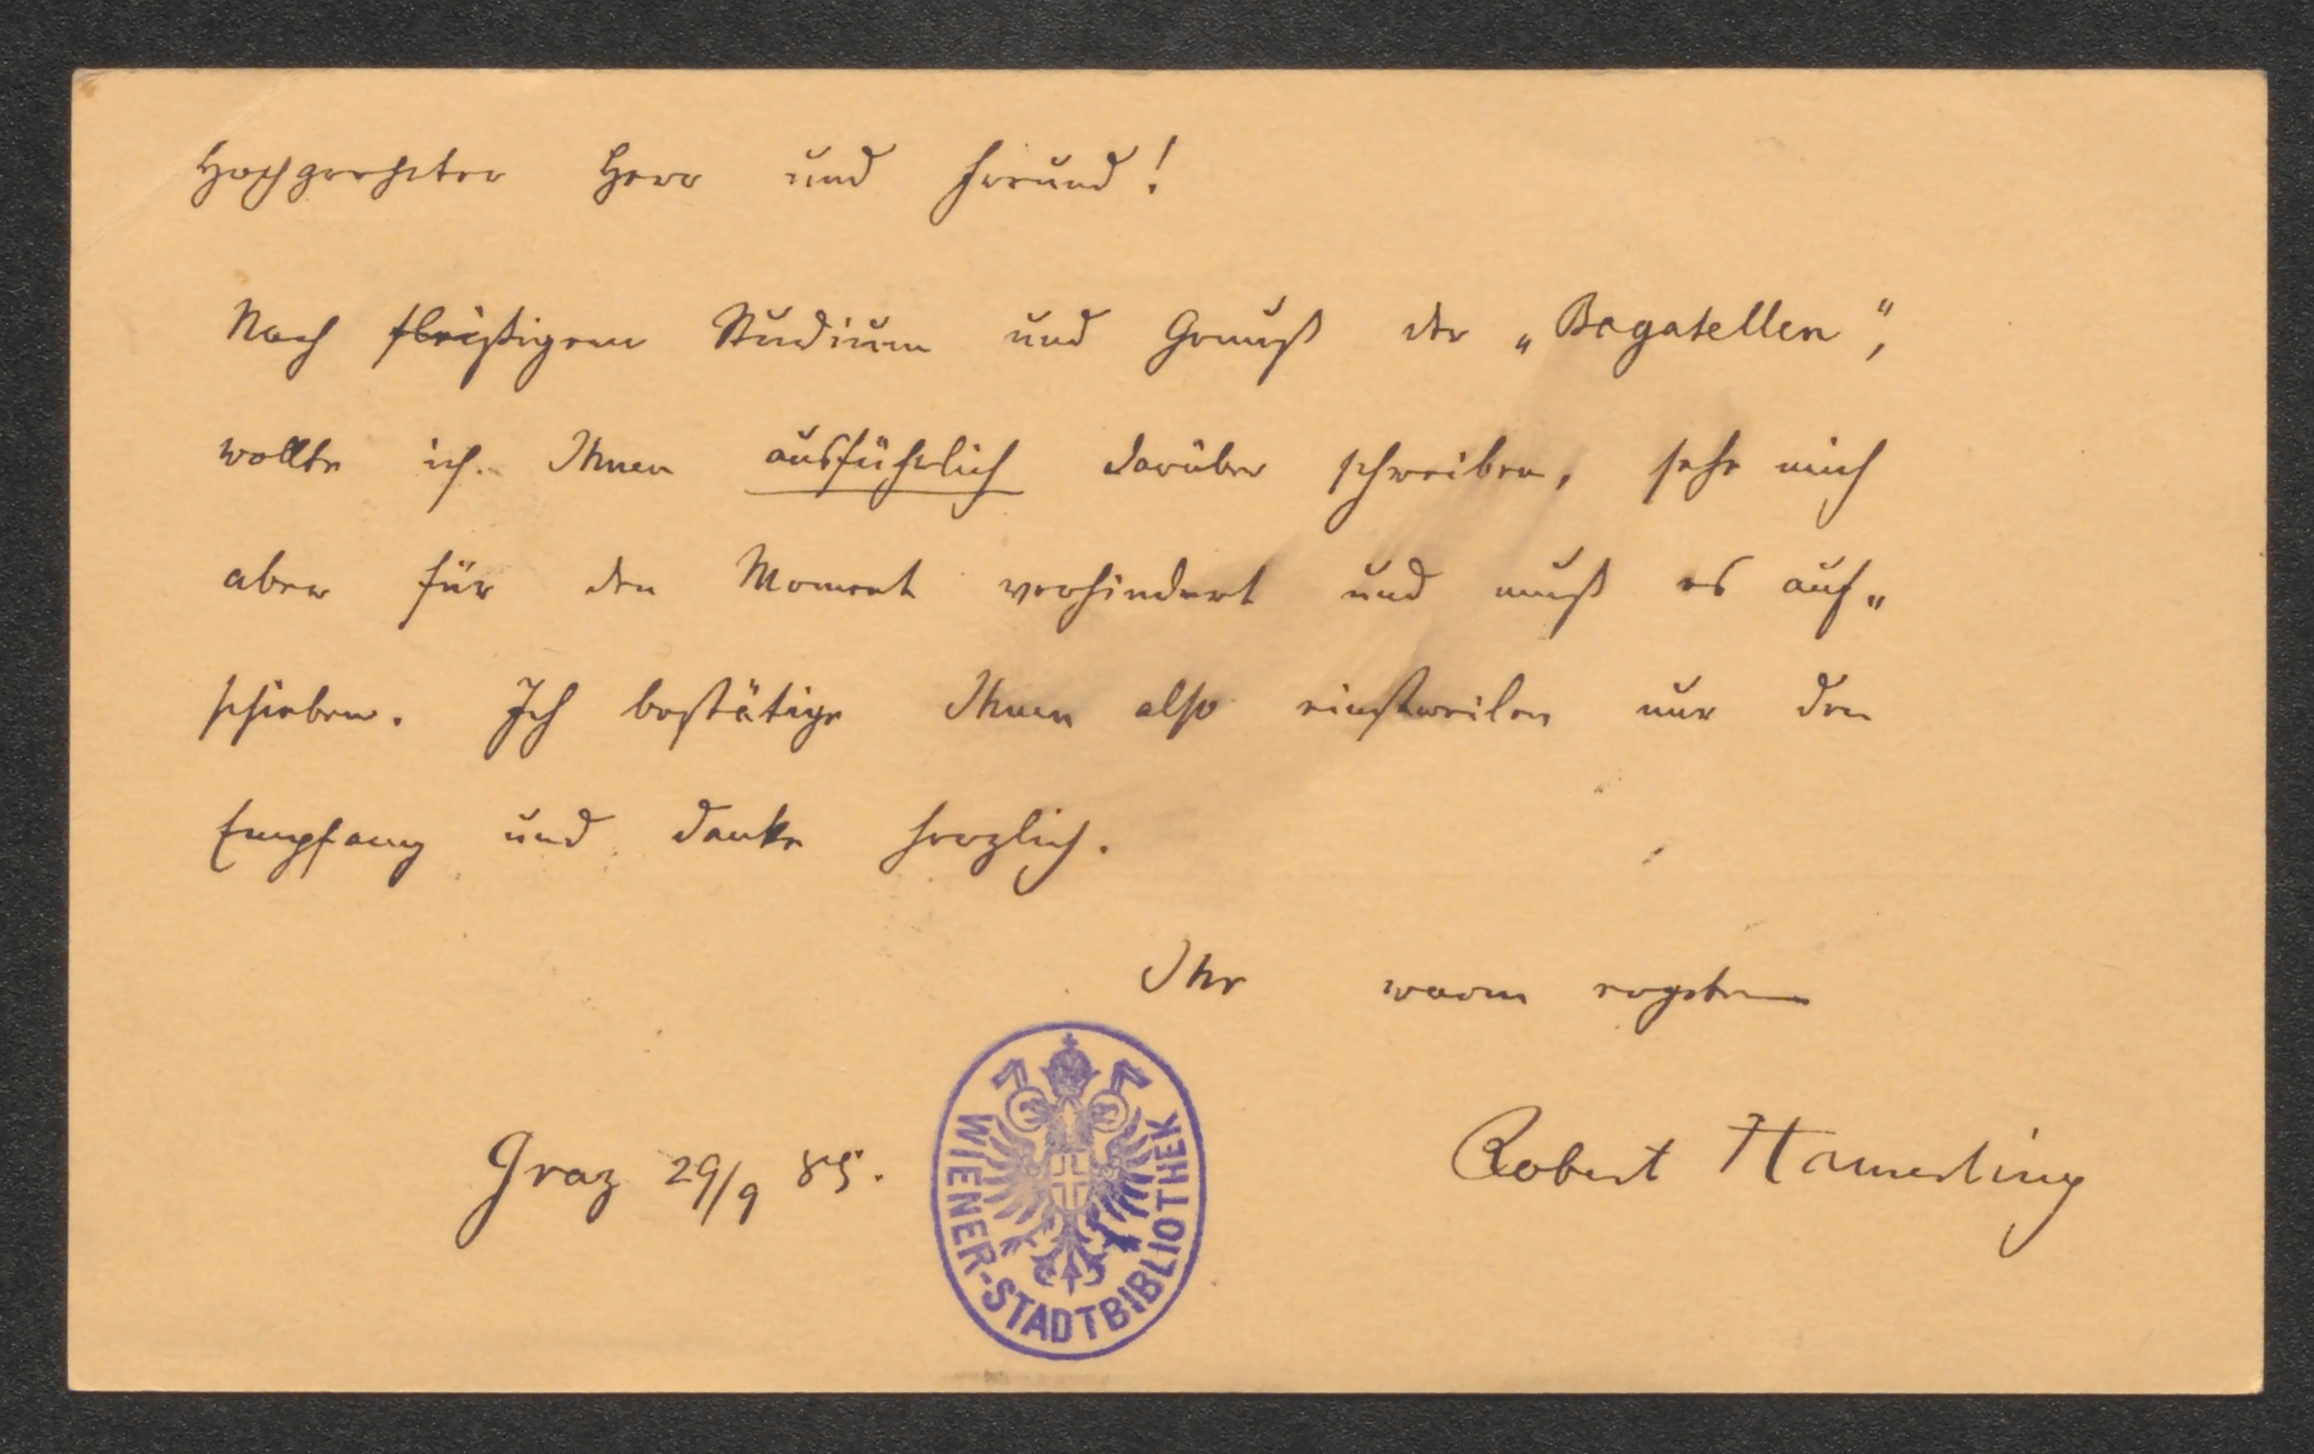 Hochgeehrter Herr und Freund!
Nach fleißigem Studium und Genuß der „Bagatellen“,
wollte ich Ihnen ausführlich darüber schreiben, sehe mich
aber für den Moment verhindert und muß es auf„
schieben. Ich bestätige Ihnen also einstweilen nur den
Empfang und danke herzlich.
Ihr warm ergebener
Graz 29/9 85.
Robert Hamerling
WIENER-STADTBIBLIOTHEK